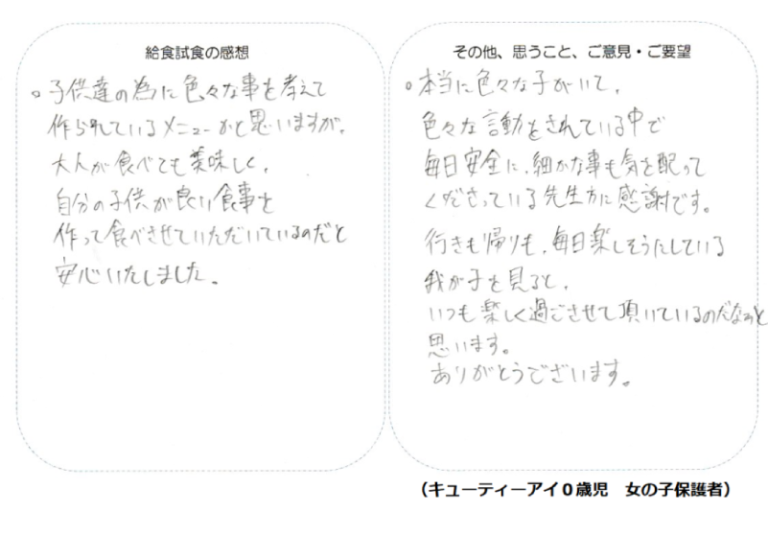 給食試食の感想
。子供達の為に色々な事を考えて
作られているメニューかと思いますが、
大人が食べても美味しく、
自分の子供が良い食事を
作って食べさせていただいているのだと
安心いたしました。
その他、思うこと、ご意見・ご要望
。本当に色々な子がいて、
色々な言動をされている中で
毎日安全に、細かな事も気を配って
くださっている先生方に感謝です。
行きも帰りも、毎日楽しそうにしている
我が子を見ると、
いつも楽しく過ごさせて頂いているのだなぁと
思います。
ありがとうございます。
（キューティーアイ０歳児　女の子保護者）